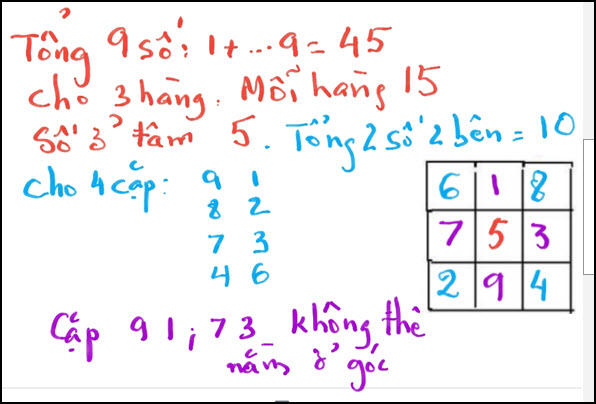 Tổng 9 số: 1+...9 = 45
cho 3 hàng. Mỗi hàng 15
Số ở tâm 5. Tổng 2 số 2 bên = 10
cho 4 cặp: 9 1
8 2
7 3
4 6
6 1 8
7 5 3
2 9 4
Cặp 9 1; 7 3 không thể
nằm ở góc